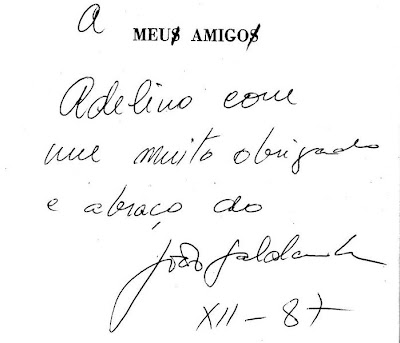 A MEUS AMIGOS
Adelino com
um muito obrigado
e abraço do
João Saldanha
XII - 87